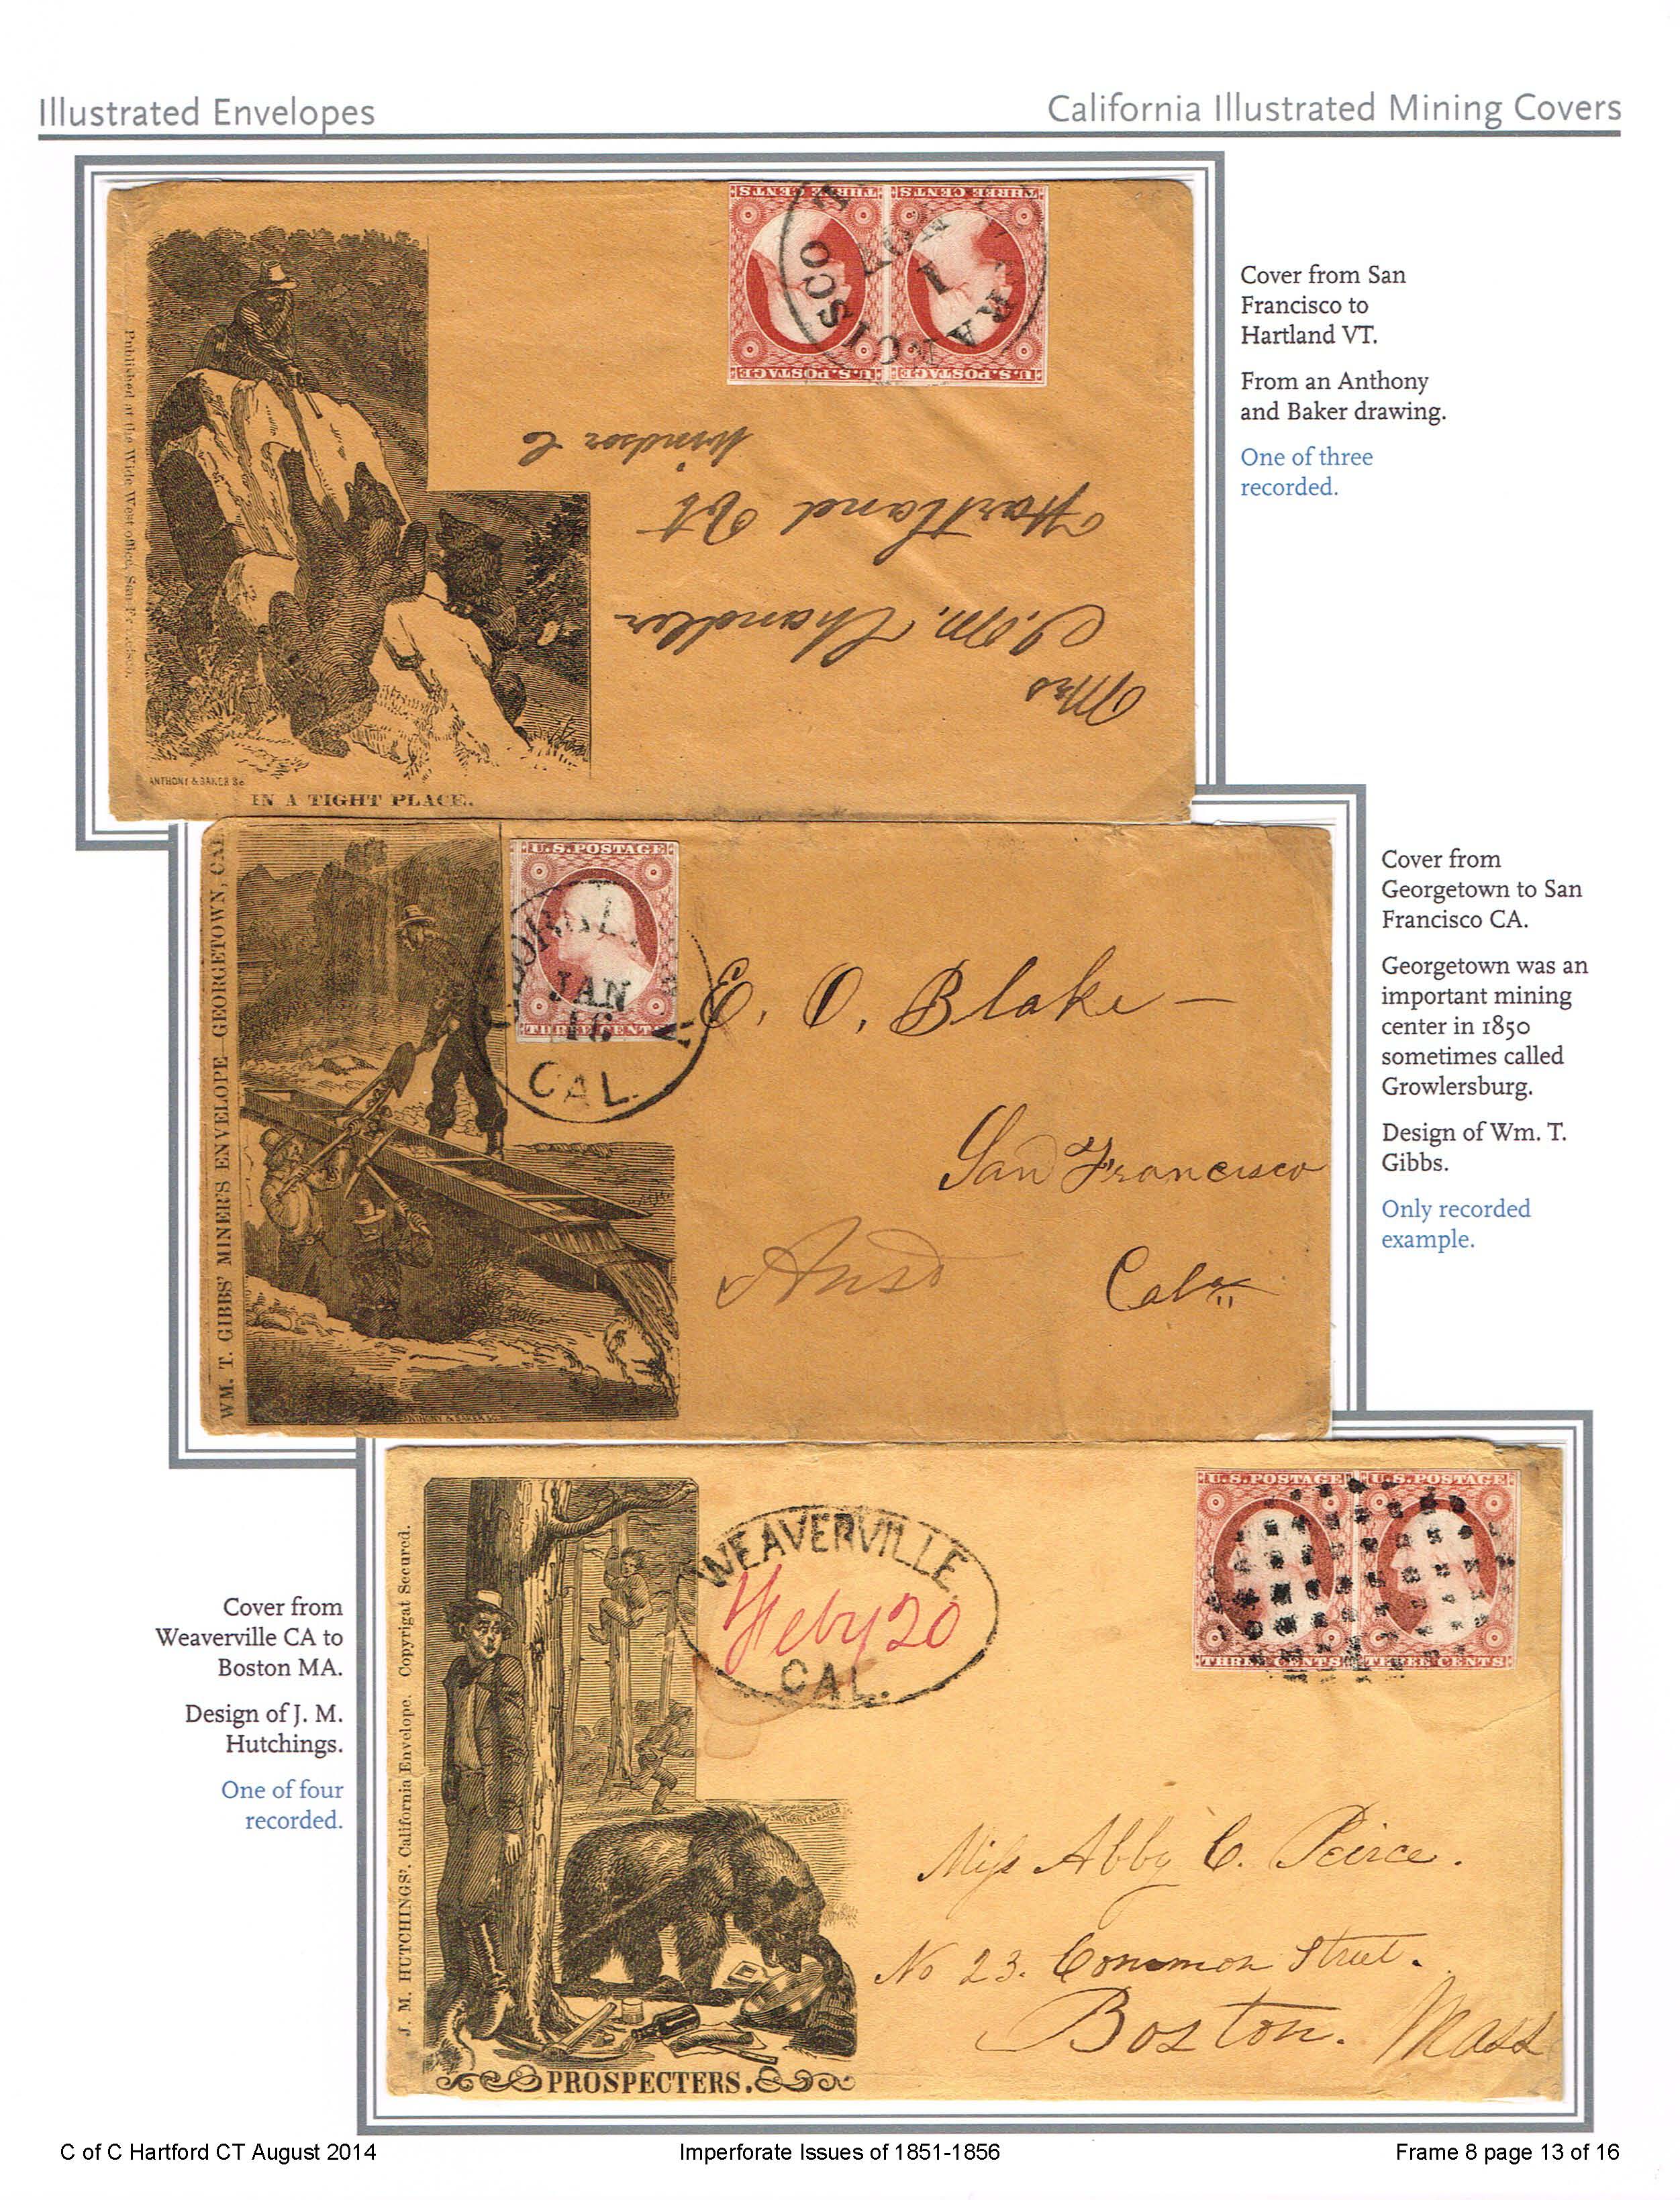 Illustrated Envelopes
California Illustrated Mining Covers
THREE CENTS
THREE CENTS
U.S. POSTAGE
U.S. POSTAGE
Published at the Wide West office, San Francisco.
Windsor Co
Hartland Vt
Chandler
Mrs
ANTHONY & BAKER Sc
IN A TIGHT PLACE.
Cover from San
Francisco to
Hartland VT.
From an Anthony
and Baker drawing.
One of three
recorded.
WM. T. GIBBS' MINER'S ENVELOPE—GEORGETOWN, CAL
U.S. POSTAGE
JAN
16
THREE CENTS
CAL.
E. O. Blake
San Francisco
Ansd
Cala
ANTHONY & BAKER Sc
Cover from
Georgetown to San
Francisco CA.
Georgetown was an
important mining
center in 1850
sometimes called
Growlersburg.
Design of Wm. T.
Gibbs.
Only recorded
example.
J. M. HUTCHINGS'. California Envelope. Copyrigat Secured.
WEAVERVILLE
Feby 20
CAL.
U.S. POSTAGE
U.S. POSTAGE
THREE CENTS
THREE CENTS
ANTHONY & BAKER
Miss Abby C. Peirce.
No 23. Common Street.
Boston. Mass
PROSPECTERS.
Cover from
Weaverville CA to
Boston MA.
Design of J. M.
Hutchings.
One of four
recorded.
C of C Hartford CT August 2014
Imperforate Issues of 1851-1856
Frame 8 page 13 of 16